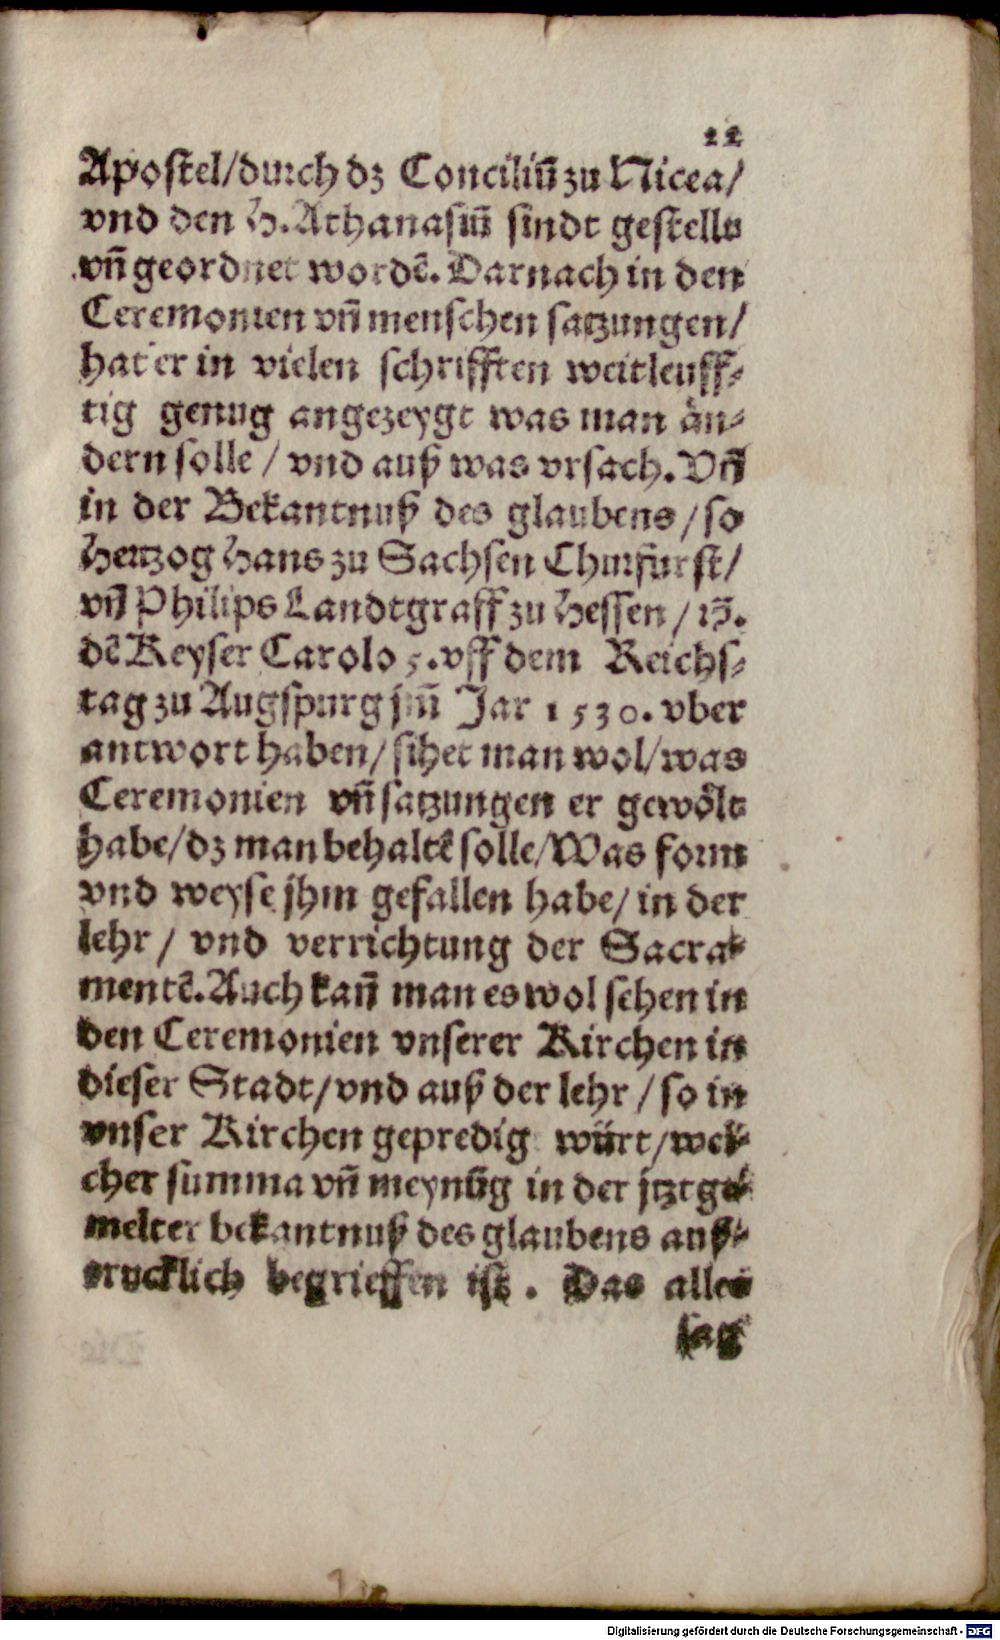 22
Apostel/durch dz Conciliũ zu Nicea/
vnd den H. Athanasiũ sindt gestellt
vñ geordnet wordẽ. Darnach in den
Ceremonien vñ menschen satzungen/
hat er in vielen schrifften weitleuff-
tig genug angezeygt was man än-
dern solle / vnd auß was vrsach. Vñ
in der Bekantnuß des glaubens/ so
Hertzog Hans zu Sachsen Churfürst/
vñ Philips Landtgraff zu Hessen /
dẽ Keyser Carolo 5. vff dem Reichs-
tag zu Augspurg jm̃ Jar 1530. vber
antwort haben/ sihet man wol/ was
Ceremonien vñ satzungen er gewölt
habe/ dz man behaltẽ solle/ Was form
vnd weyse jhm gefallen habe/ in der
lehr / vnd verrichtung der Sacra-
mentẽ. Auch kañ man es wol sehen in
den Ceremonien vnserer Kirchen in
dieser Stadt/ vnd auß der lehr / so in
vnser Kirchen gepredig würt/ wel-
cher summa vñ meynũg in der jtzt ge-
melter bekantnuß des glaubens auß-
trucklich begrieffen ist . Das alles
sag
Digitalisierung gefördert durch die Deutsche Forschungsgemeinschaft - DFG